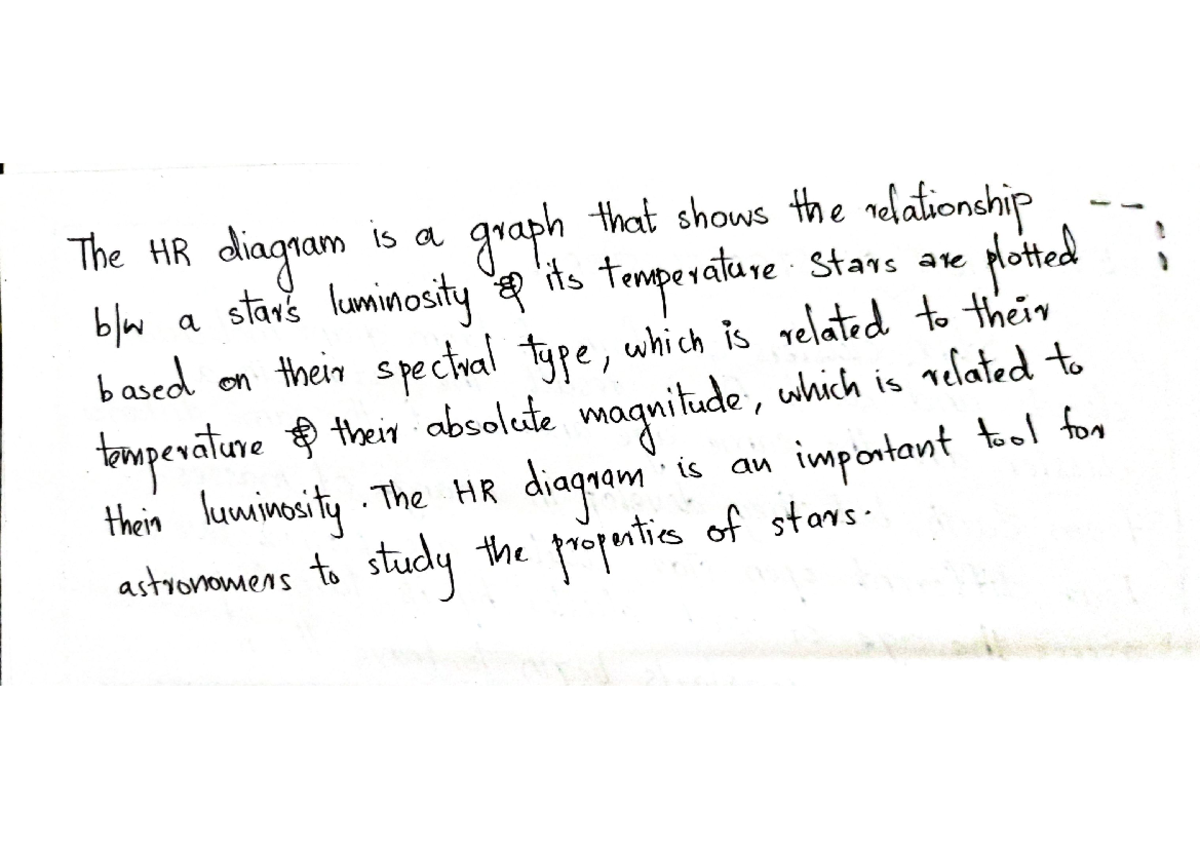 The HR diagram is a graph that shows the relationship
b/w a star's luminosity & its temperature. Stars are plotted
based on their spectral type, which is related to their
temperature & their absolute magnitude, which is related to
their luminosity. The HR diagram is an important tool for
astronomers to study the properties of stars.